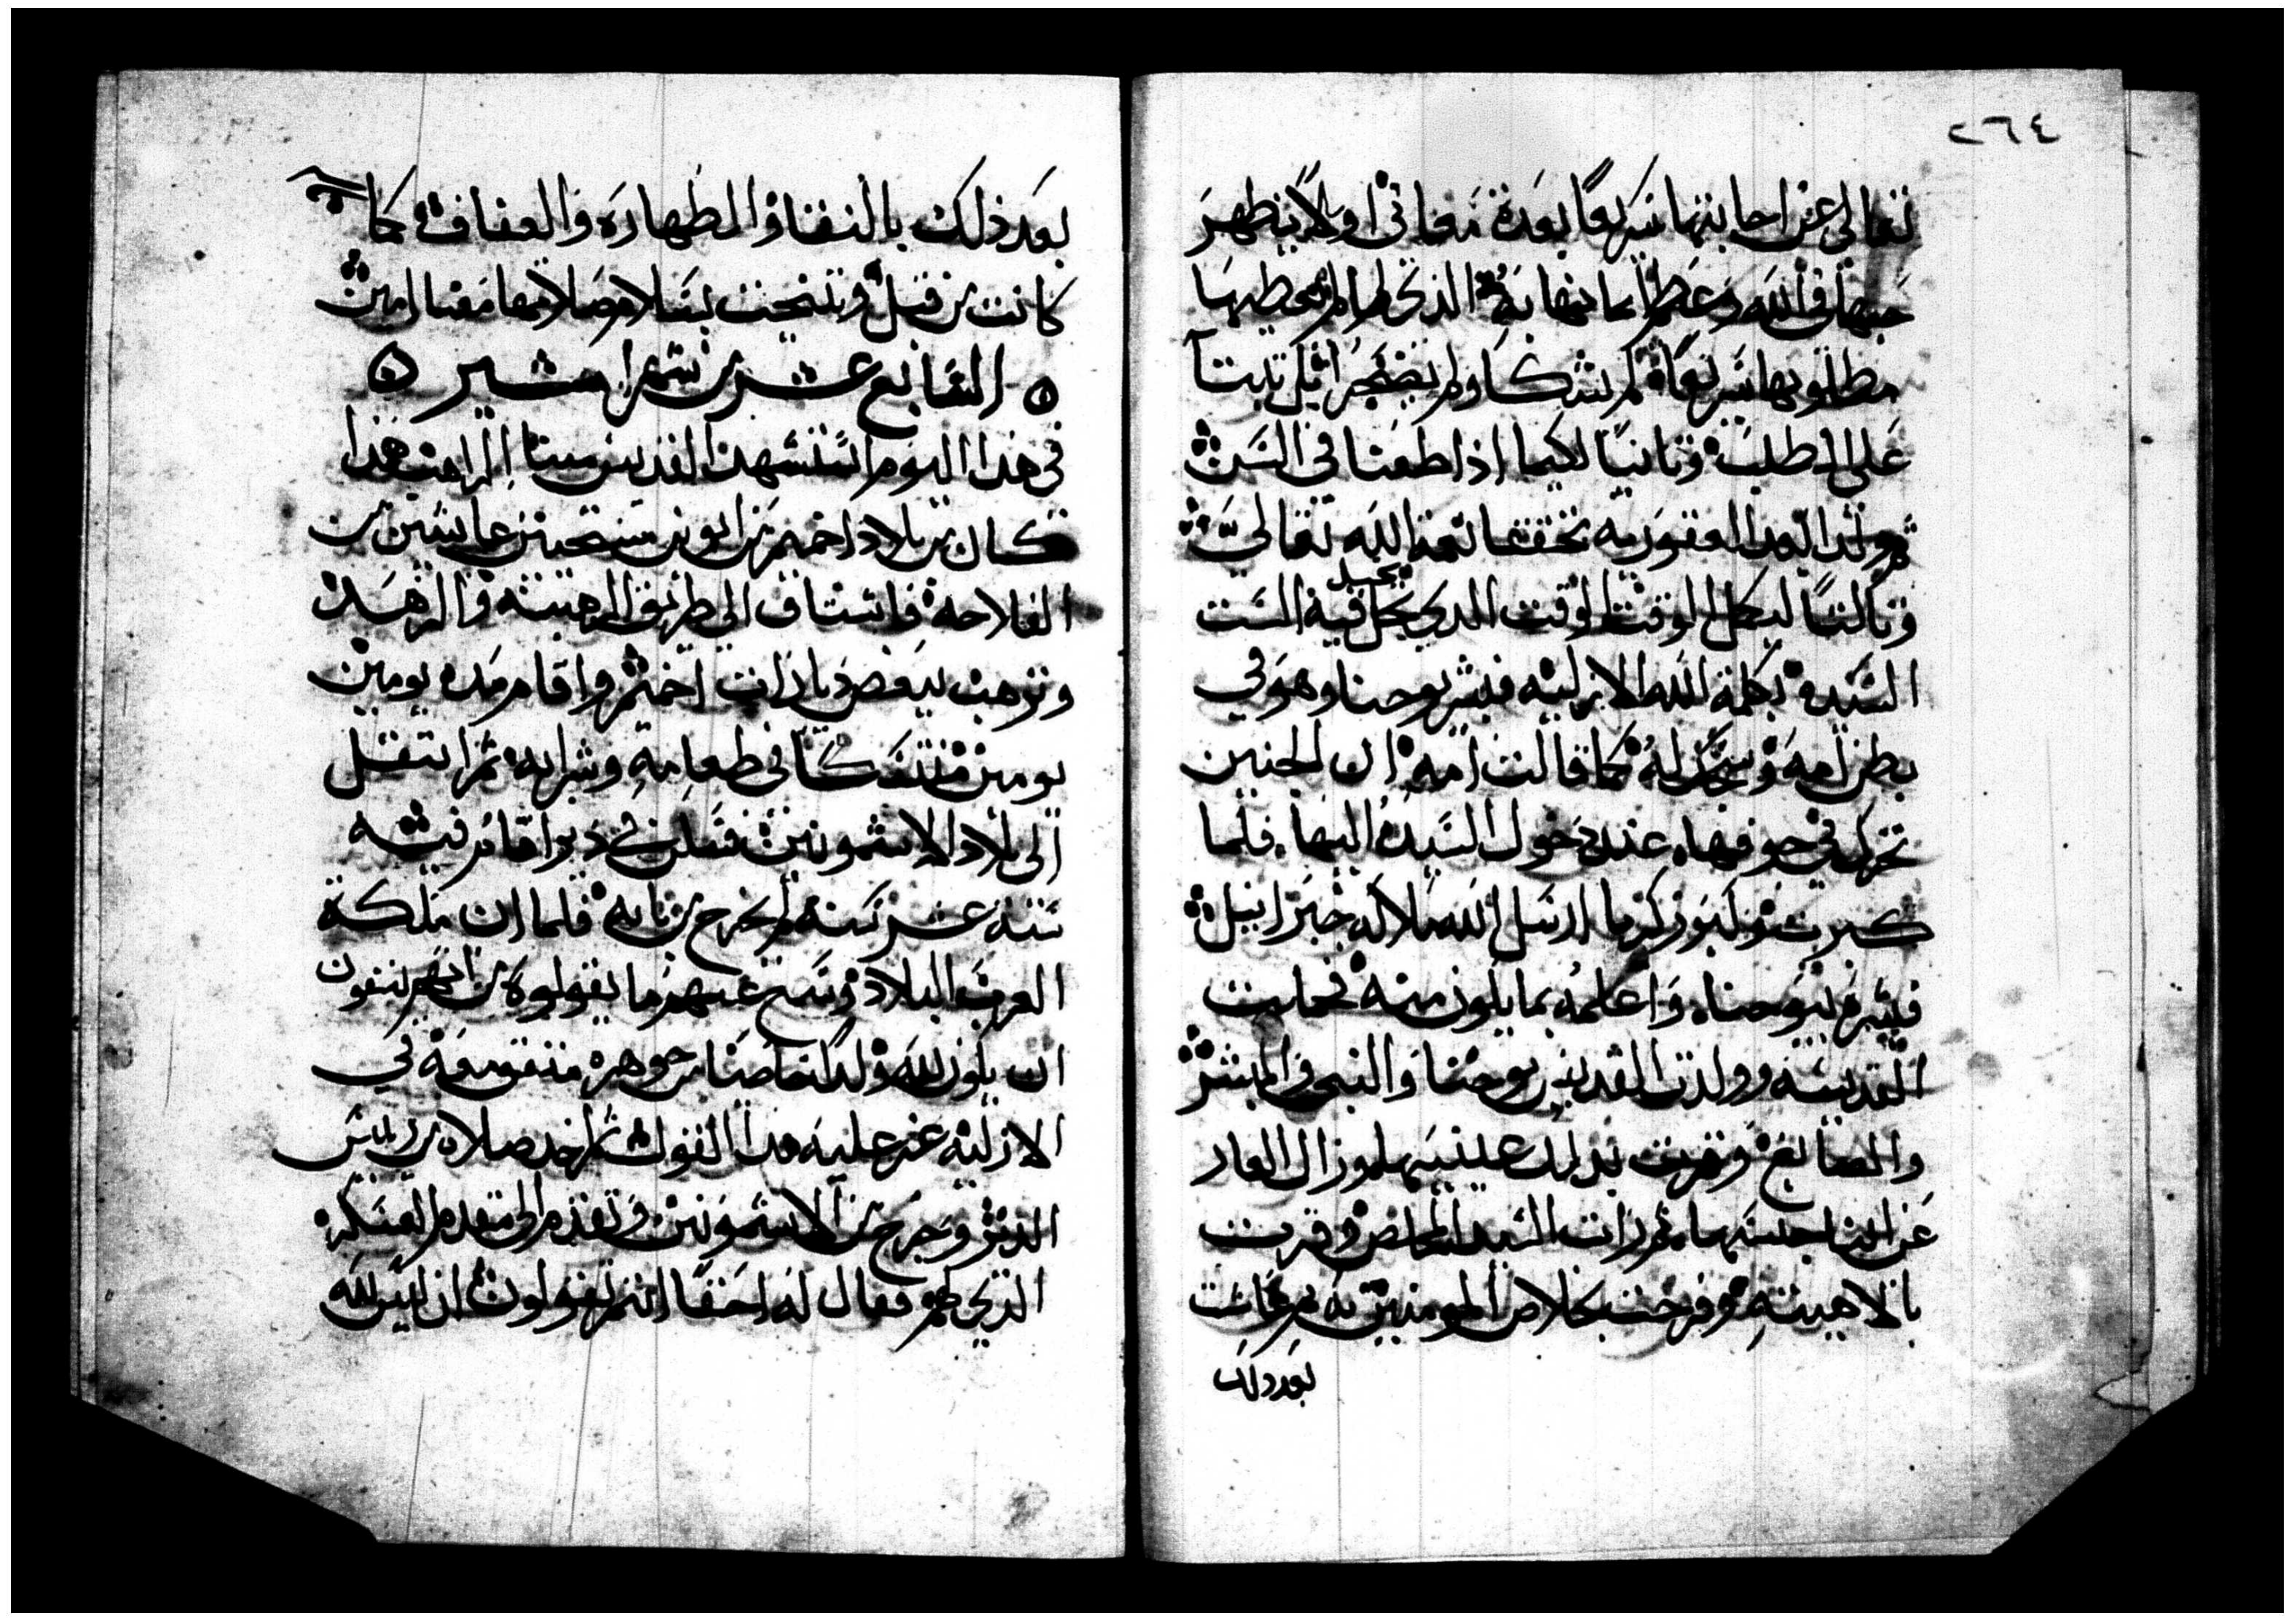 ٢٦٤
تعالى عن اجابتها سريعا بعدة معاني اولا ليظهر
حبها في الله وعظم امانتها به الذي لما لم يعطيها
مطلوبها سريعا لم تشكا ولم تضجر بل تثبت
على الطلب وثانيا لكيما اذا طعنا في السن
ثم ولدا بعد العقوريه تحققا نعمة الله تعالى
وثالثا ليكمل الوقت الوقت الدي يحل فيه الست
السيده بكلمة الله الازليه فبشر يوحنا وهو في
بطن امه وسجد له كما قالت امه ان الجنين
تحرك في جوفها عند دخول السيده اليها فلما
كبرت وكبر زكريا ارسل الله ملاكه جبرائيل
فبشره بيوحنا واعلمه بما يكون منه فحملت
القديسه وولدت القديس يوحنا والنبي والمبشر
والصابغ وقرت بذلك عينيها وزال العار
عن جنسها ثم رات السيد المخلص وقرت
بالاهيته وفرحت بخلاص المومنين به ثم عاشت
بعد دلك
بعد ذلك بالنقا والطهاره والعفاف كما
كانت من قبل وتنيحت بسلام صلاتها معنا امين
السابع عشر من شهر امشير
في هدا اليوم استشهد القديس مينا الراهب هدا
كان من بلاد اخميم من ابوين مسيحيين عايشين من
الفلاحه فاشتاق الى طريق الرهبنه والزهد
وترهب ببعض ديارات اخميم واقام مده يومين
يومين متنسكا في طعامه وشرابه ثم انتقل
الى بلاد الاشمونين فسكن في دير اقام فيه
ستة عشر سنه لم يخرج من بابه فلما ان ملكة
العرب البلاد وسمع عنهم ما يقولوه من انهم ينفون
ان يكون لله ولدا خاصا من جوهره متقومة في
الازليه عز عليه هدا القول ثم اخد صلاه من ريس
الدير وخرج من الاشمونين وتقدم الى مقدم العسكر
الذي لهم فقال له احقا انتم تقولون ان ليس لله